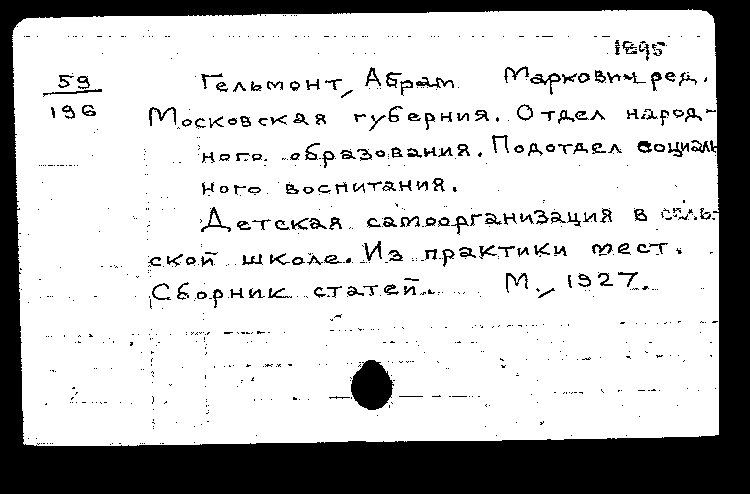 1895
59 Гельмонт, Абрам Маркович ред.
196 Московская губерния. Отдел народ-
ного образования. Подотдел социаль
ного воспитания.
Детская самоорганизация в сель-
ской школе. Из практики мест.
Сборник статей. М., 1927.